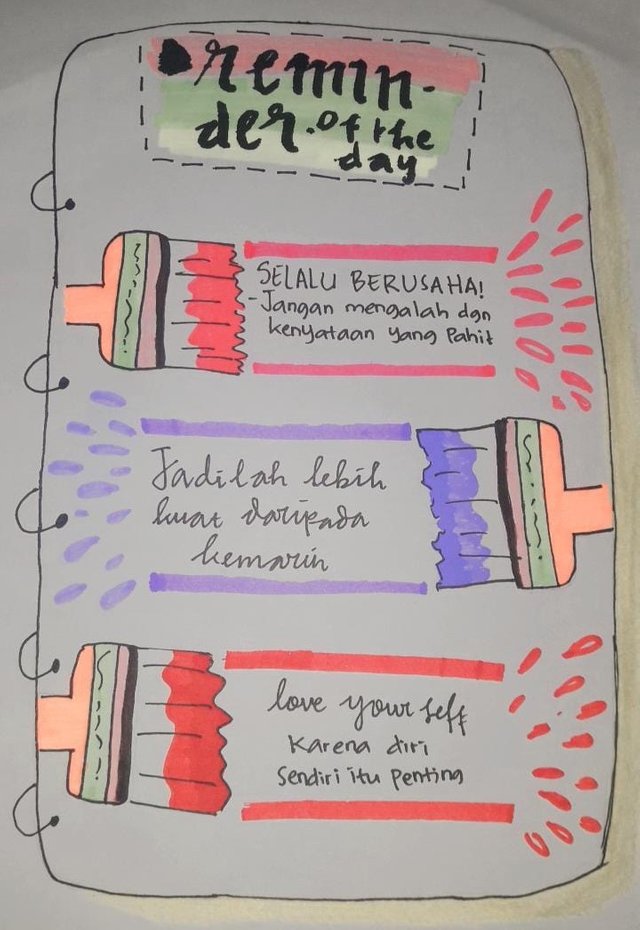 remin-
der.of the
day
SELALU BERUSAHA!
-Jangan mengalah dgn
kenyataan yang Pahit
Jadilah lebih
kuat daripada
kemarin
love yourself
Karena diri
Sendiri itu Penting